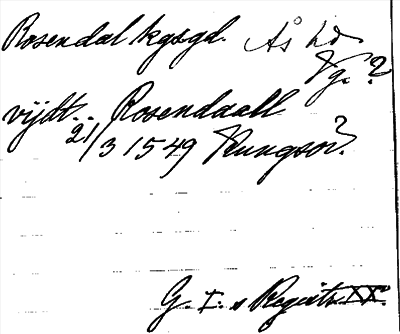 Rosendal kgsgd. Ås hd
Vg.?
vijdt.. Rosendaall
21/3 1549 Kungsör?
G. I:s Registr. XX.